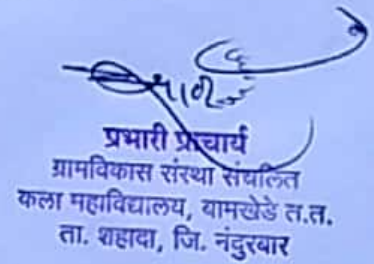 प्रभारी प्राचार्य
ग्रामविकास संस्था संचलित
कला महाविद्यालय, बामखेडे त.त.
ता. शहादा, जि. नंदुरबार